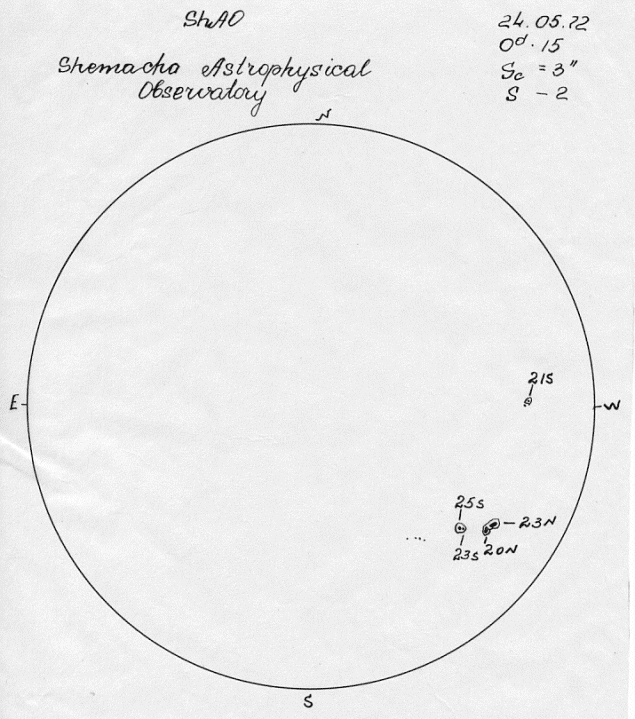 ShAO
Shemacha Astrophysical
Observatory
24.05.72
0d.15
Sc = 3"
S - 2
N
21S
E
W
25S
23N
23S 20N
S